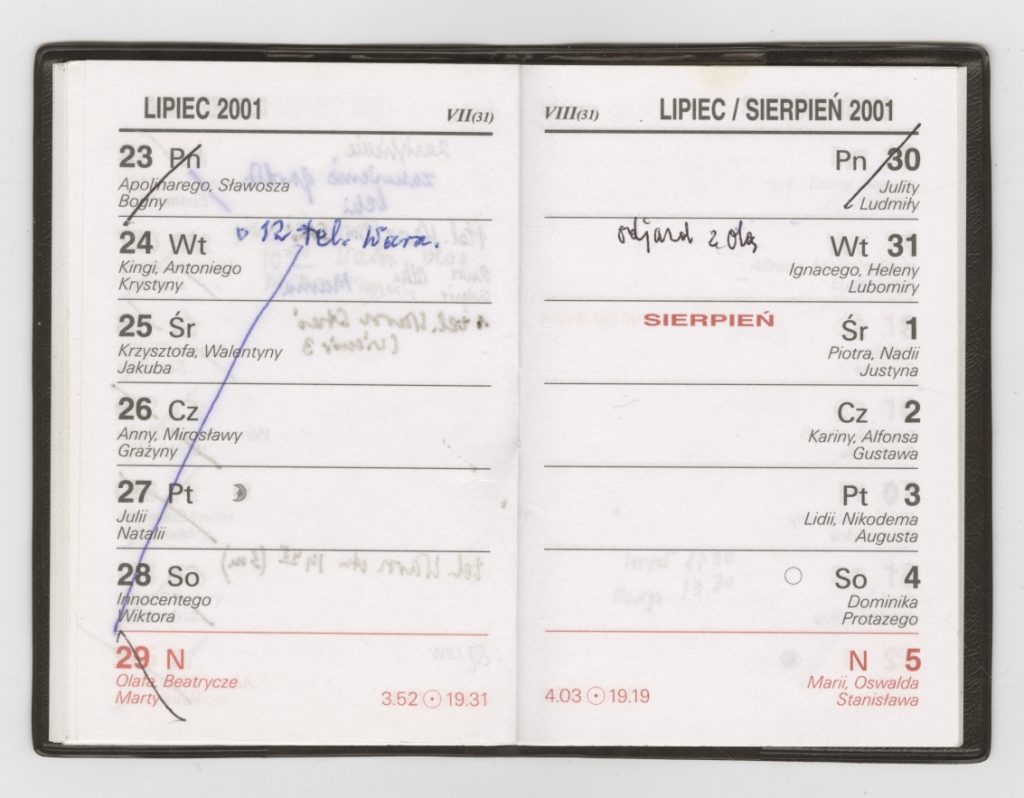 LIPIEC 2001
VII(31)
23 Pn
Apolinarego, Sławosza
Bogny
24 Wt
12 tel. Wara.
Kingi, Antoniego
Krystyny
25 Śr
Krzysztofa, Walentyny
Jakuba
26 Cz
Anny, Mirosławy
Grażyny
27 Pt
Julii
Natalii
28 So
Innocentego
Wiktora
29 N
Olafa, Beatrycze
Marty
3.52 19.31
VIII(31)
LIPIEC / SIERPIEŃ 2001
Pn 30
Julity
Ludmiły
odjazd z Olą
Wt 31
Ignacego, Heleny
Lubomiry
SIERPIEŃ
Śr 1
Piotra, Nadii
Justyna
Cz 2
Kariny, Alfonsa
Gustawa
Pt 3
Lidii, Nikodema
Augusta
So 4
Dominika
Protazego
N 5
Marii, Oswalda
Stanisława
4.03 19.19